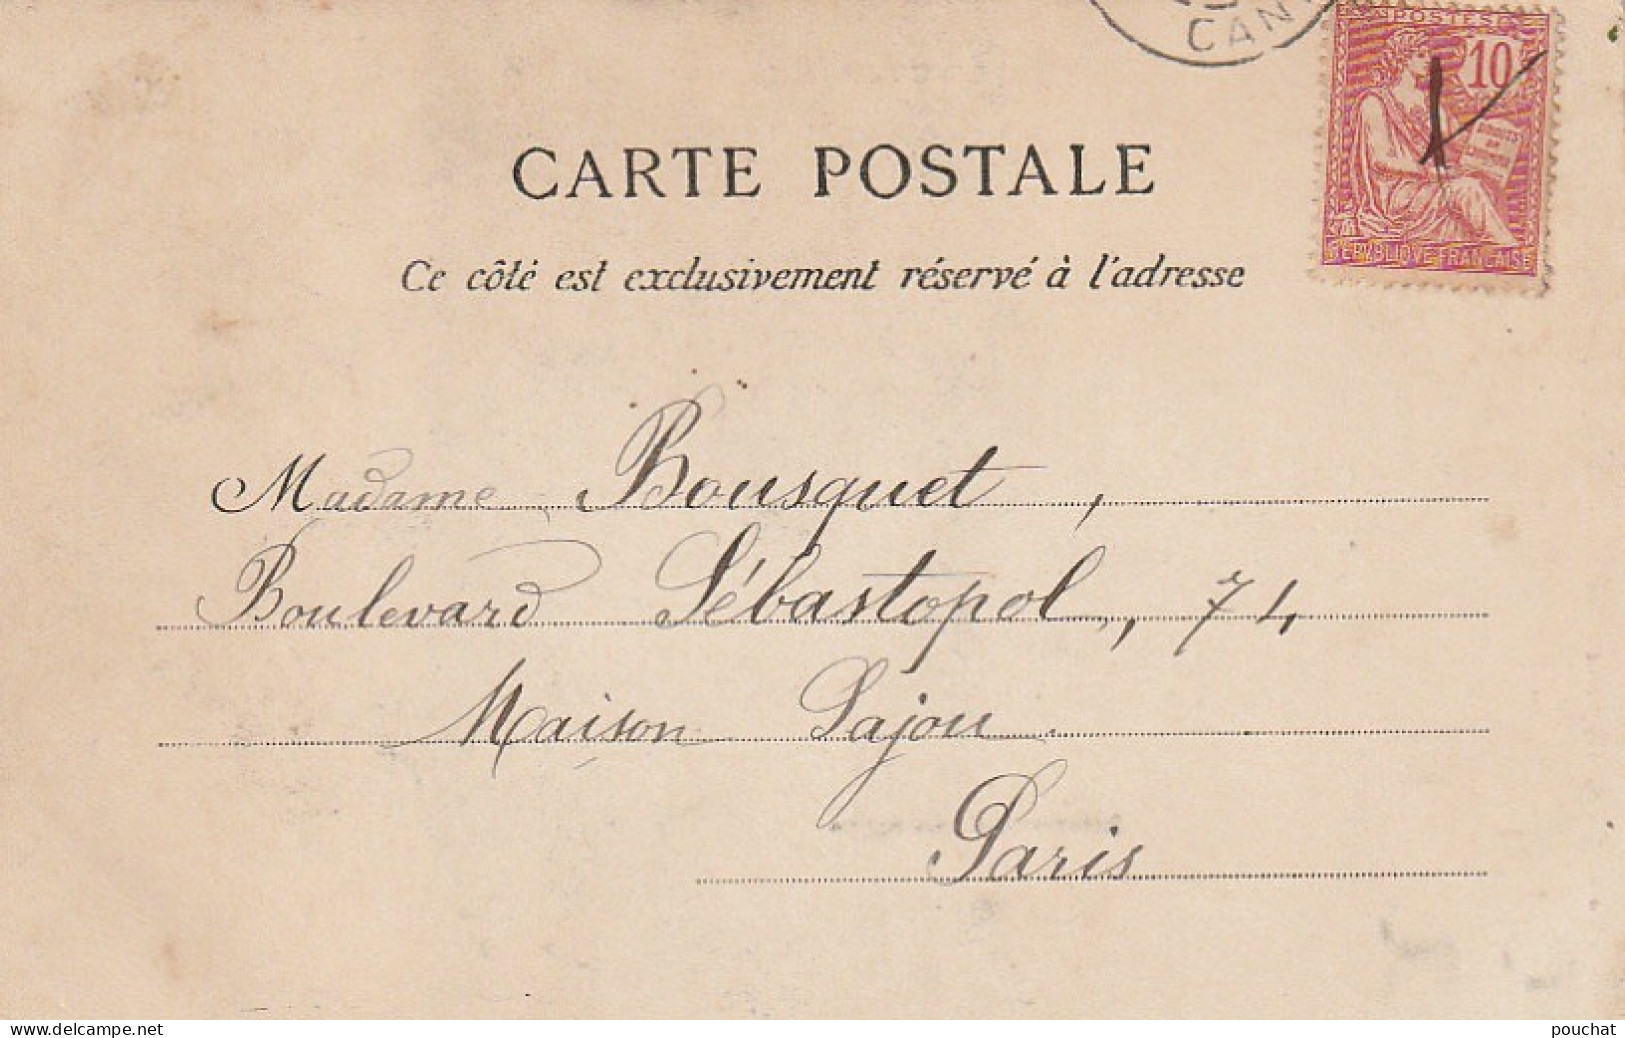 CAN
POSTES
10
DROITS
DE
L'HOMME
REPVBLIQVE FRANCAISE
CARTE POSTALE
Ce côté est exclusivement réservé à l'adresse
Madame Bousquet,
Boulevard Sébastopol, 74
Maison Sajou
Paris
www.delcampe.net
pouchat